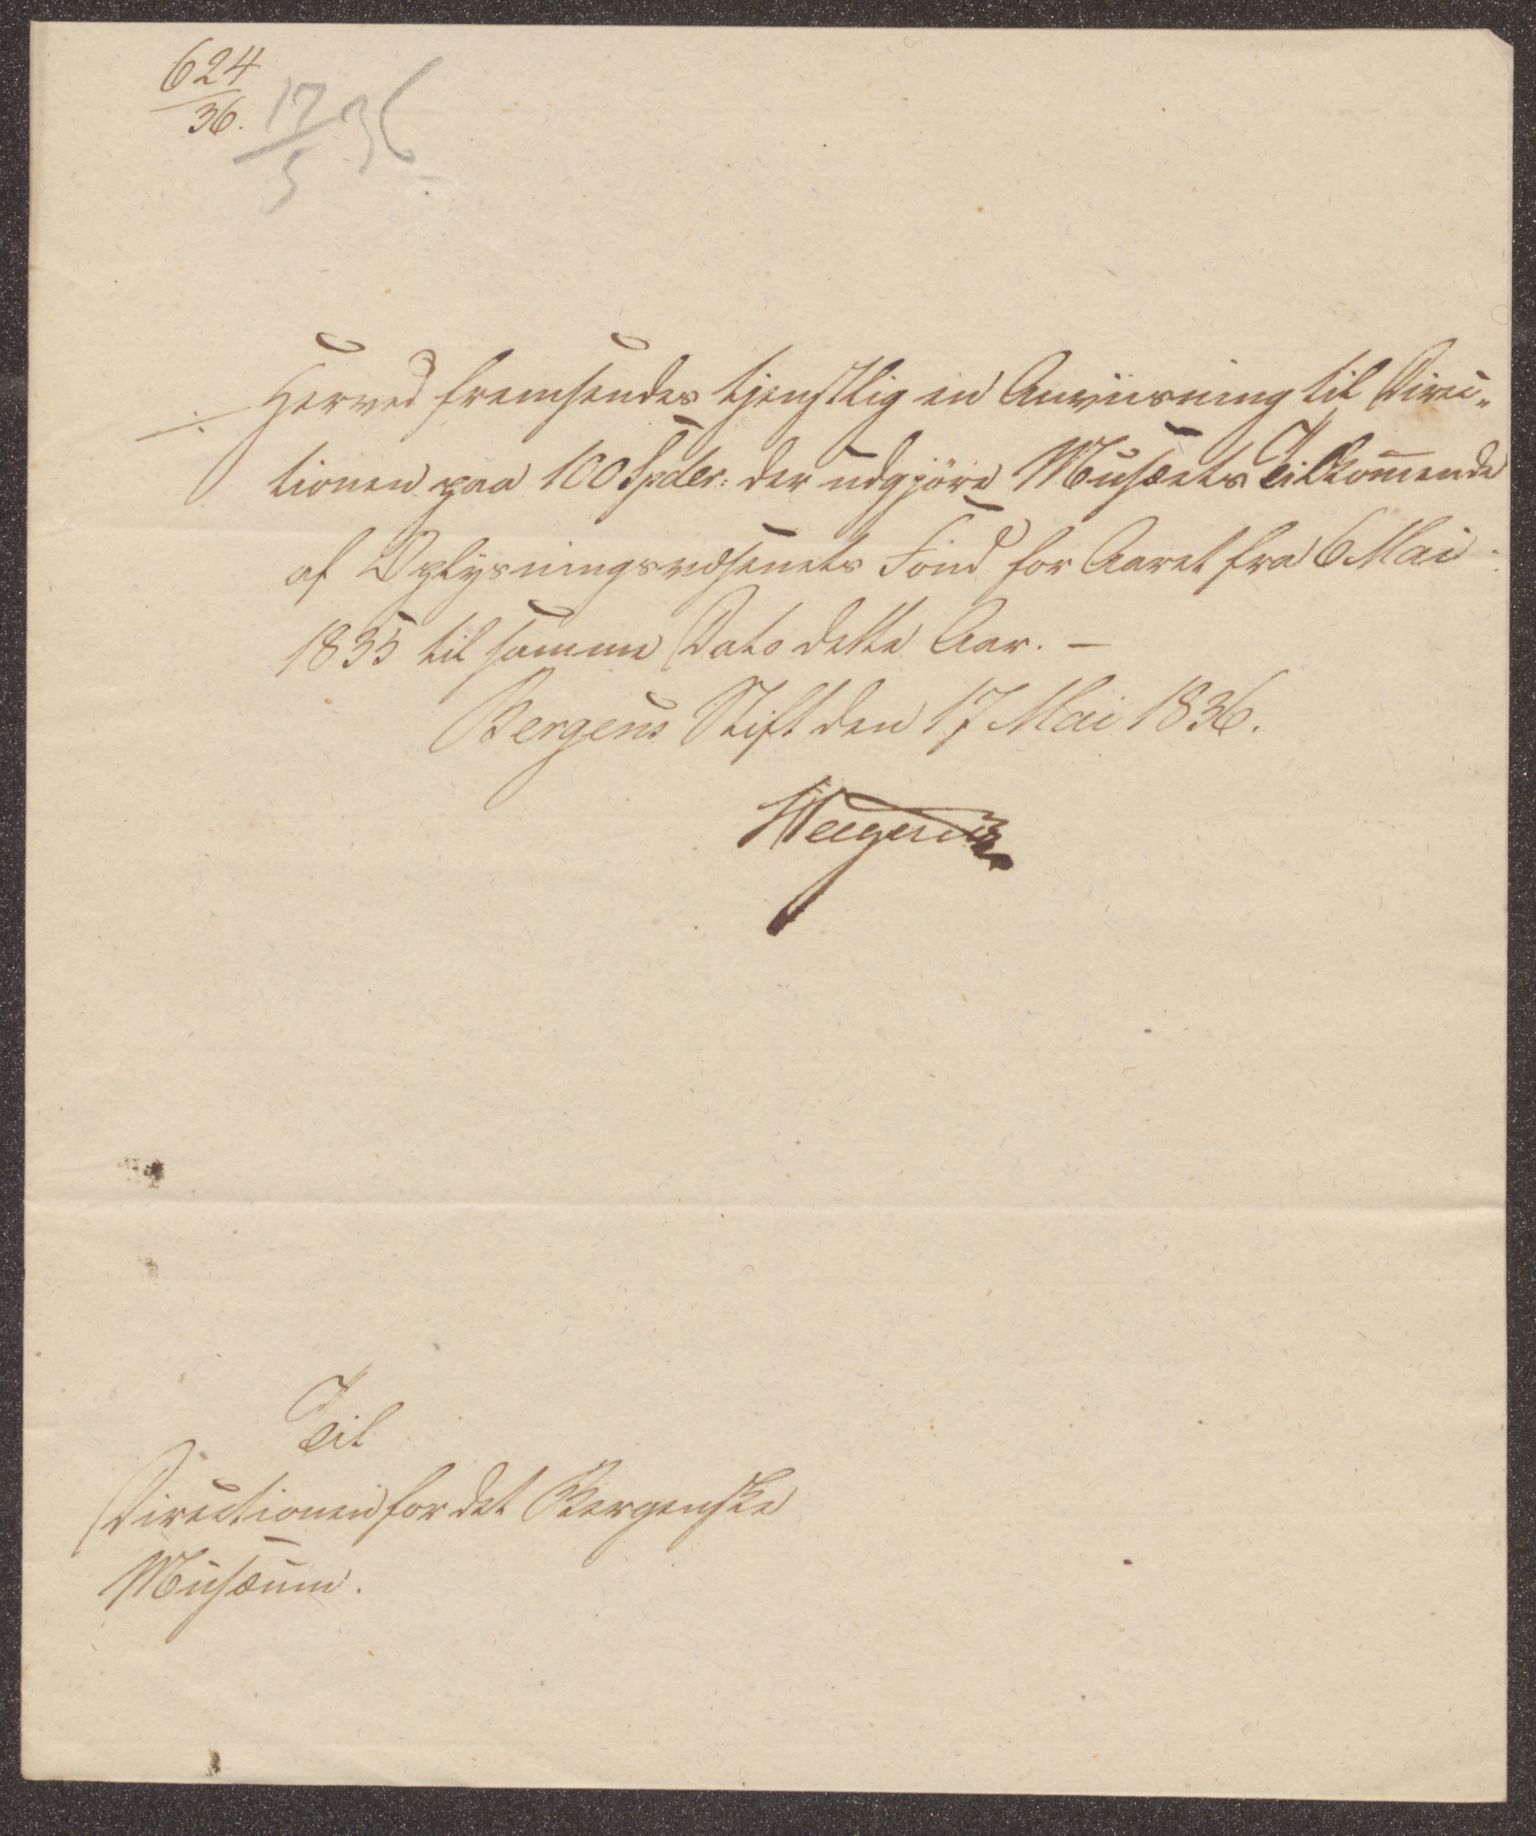 624
36.
17/5 36
Herved fremsendes tjenstlig en Anviisning til Direc„
tionen paa 100 Spdlr: der udgjöre Musæets Tilkommende
af Oplysningsvæsenets Fond for Aaret fra 6 Mai
1835 til samme Dato dette Aar. –
Bergens Stift den 17 Mai 1836.
Til
Directionen for det Bergenske
Musæum.